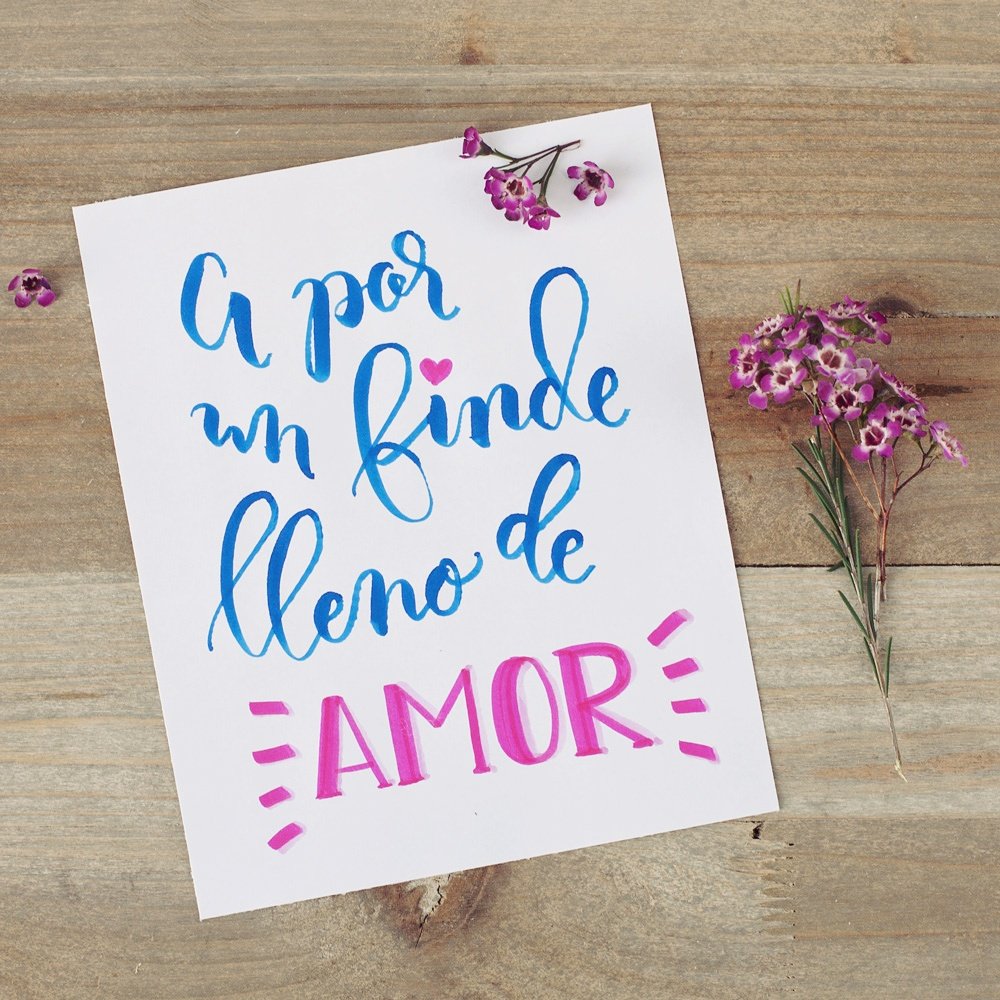 a por
un finde
lleno de
AMOR